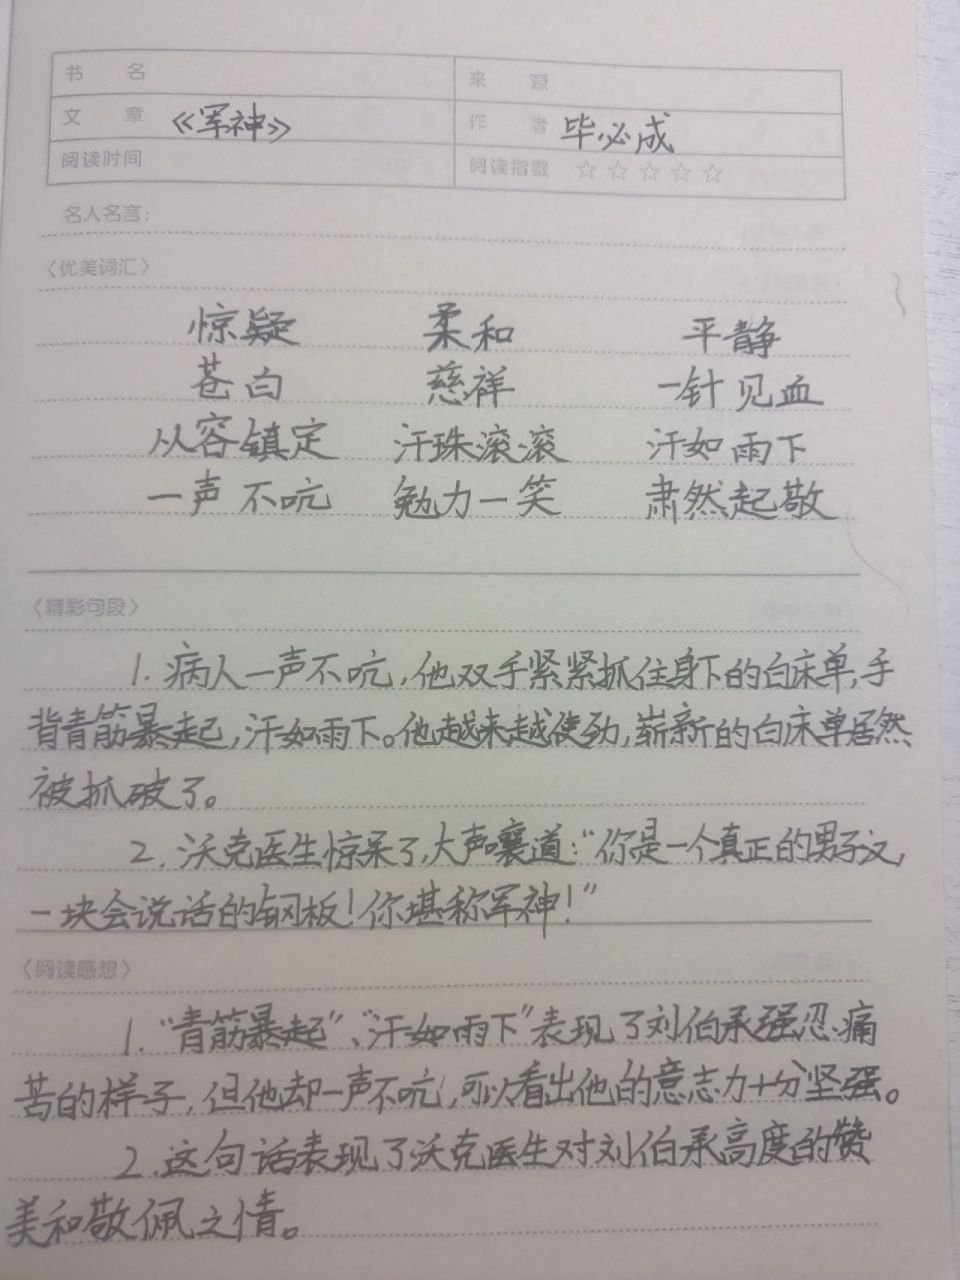 书 名 来 源
文 章 《军神》 作 者 毕必成
阅读时间 阅读指数 ☆☆☆☆☆
名人名言：
〈优美词汇〉
惊疑 柔和 平静
苍白 慈祥 一针见血
从容镇定 汗珠滚滚 汗如雨下
一声不吭 勉力一笑 肃然起敬
〈精彩句段〉
1. 病人一声不吭，他双手紧紧抓住身下的白床单，手
背青筋暴起，汗如雨下。他越来越使劲，崭新的白床单居然
被抓破了。
2. 沃克医生惊呆了，大声嚷道：“你是一个真正的男子汉，
一块会说话的钢板！你堪称军神！”
〈阅读感想〉
1. “青筋暴起”、“汗如雨下”表现了刘伯承强忍痛
苦的样子，但他却一声不吭，可以看出他的意志力十分坚强。
2. 这句话表现了沃克医生对刘伯承高度的赞
美和敬佩之情。